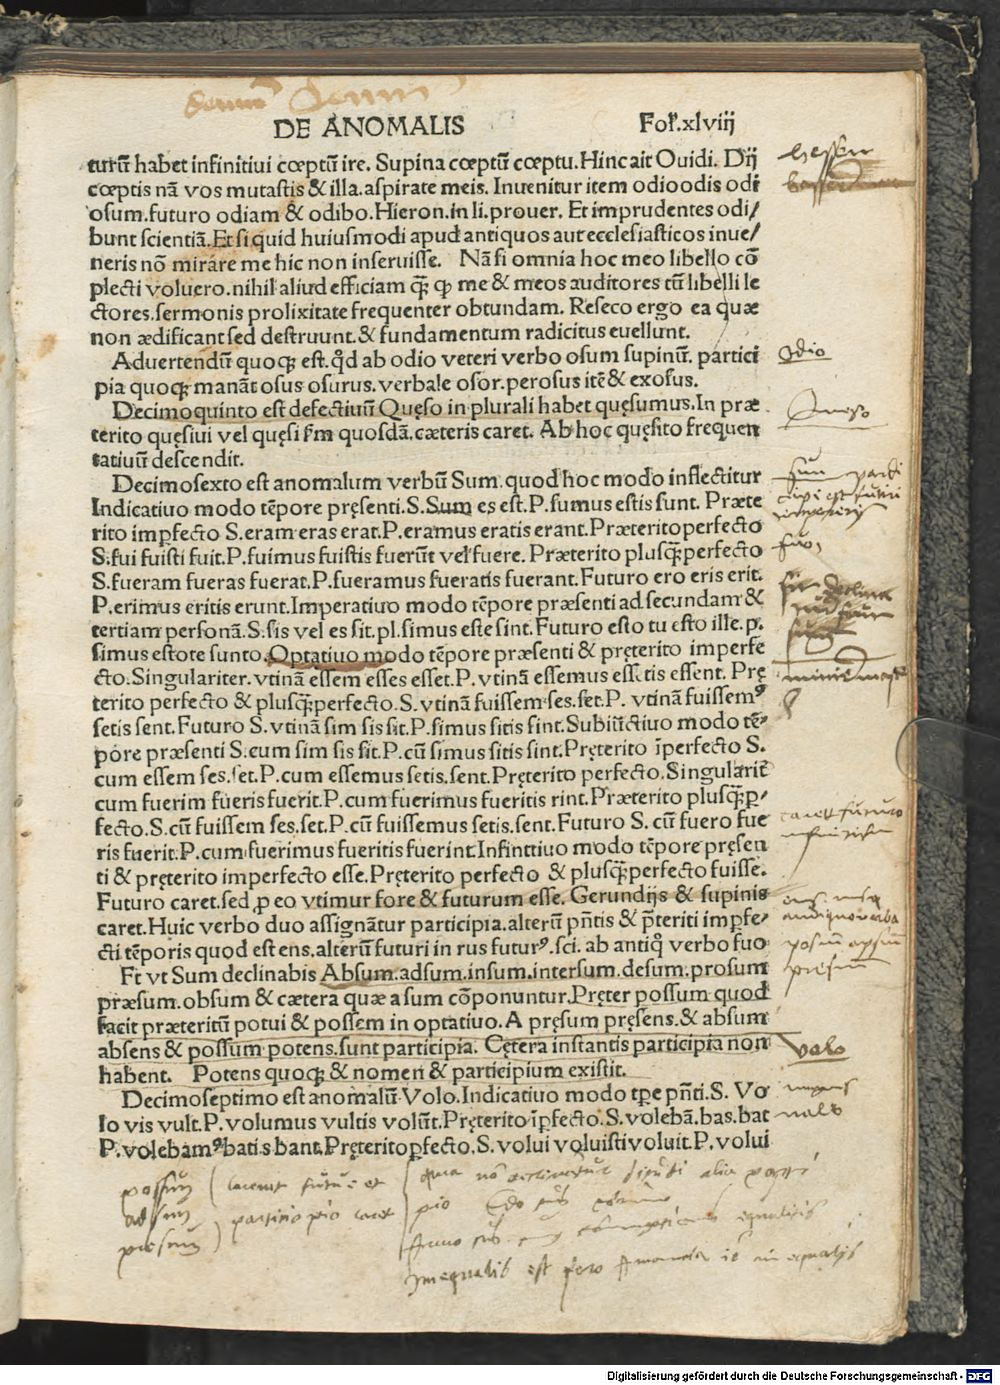 DE ANOMALIS Foł.xlviij
turū habet infinitiui cœptū ire. Supina cœptū cœptu. Hinc ait Ouidi. Dij
cœptis nā vos mutastis & illa. aspirate meis. Inuenitur item odio odis odi
osum. futuro odiam & odibo. Hieron. in li. prouer. Et imprudentes odi/
bunt scientiā. Et si quid huiusmodi apud antiquos aut ecclesiasticos inue/
neris nō mirare me hic non inseruisse. Nā si omnia hoc meo libello cō
plecti voluero. nihil aliud efficiam q̄ꝫ ꝙ me & meos auditores tū libelli le
ctores. sermonis prolixitate frequenter obtundam. Reseco ergo ea quæ
non ædificant sed destruunt. & fundamentum radicitus euellunt.
Aduertendū quoqꝫ est. qd̄ ab odio veteri verbo osum supinū. partici
pia quoqꝫ manāt osus osurus. verbale osor. perosus itē & exosus.
odio
Decimoquinto est defectiuū Quęso in plurali habet quęsumus. In præ
terito quęsiui vel quęsi s̄m quosdā. cæteris caret. Ab hoc quęsito frequen
tatiuū descendit.
Queso
Decimosexto est anomalum verbū Sum. quod hoc modo inflectitur
Indicatiuo modo tēpore pręsenti. S. Sum es est. P. sumus estis sunt. Præte
rito imꝑfecto S. eram eras erat. P. eramus eratis erant. Præterito perfecto
S. fui fuisti fuit. P. fuimus fuistis fuerūt vel fuere. Præterito plusq̄ꝫ perfecto
S. fueram fueras fuerat. P. fueramus fueratis fuerant. Futuro ero eris erit.
P. erimus eritis erunt. Imperatiuo modo tēpore præsenti ad secundam &
tertiam personā. S. sis vel es sit. pl. simus este sint. Futuro esto tu esto ille. p.
simus estote sunto. Optatiuo modo tēpore præsenti & pręterito imperfe
cto. Singulariter. vtinā essem esses esset. P. vtinā essemus essetis essent. Prę
terito perfecto & plusq̄ꝫ perfecto. S. vtinā fuissem. ses. set. P. vtinā fuissemꝰ
setis sent. Futuro S. vtinā sim sis sit. P. simus sitis sint. Subiūctiuo modo tē-
pore præsenti S. cum sim sis sit. P. cū simus sitis sint. Pręterito īperfecto S.
cum essem ses. set. P. cum essemus setis. sent. Pręterito perfecto. Singularit̄
cum fuerim fueris fuerit. P. cum fuerimus fueritis rint. Præterito plusq̄ꝫ ꝑ-
fecto. S. cū fuissem ses. set. P. cū fuissemus setis. sent. Futuro S. cū fuero fue
ris fuerit. P. cum fuerimus fueritis fuerint. Infinitiuo modo tēpore pręsen
ti & pręterito imperfecto esse. Pręterito perfecto & plusq̄ꝫ perfecto fuisse.
Futuro caret. sed ꝓ eo vtimur fore & futurum esse. Gerundijs & supinis
caret. Huic verbo duo assignātur participia. alterū pn̄tis & p̄teriti imꝑfe-
cti tēporis quod est ens. alterū futuri in rus futurꝰ. sci. ab antiq̊ verbo fuo
Et vt Sum declinabis Absum. adsum. insum. intersum. desum. prosum
præsum. obsum & cætera quæ a sum cōponuntur. Pręter possum quod
facit præteritū potui & possem in optatiuo. A pręsum pręsens. & absum
absens & possum potens. sunt participia. Cętera instantis participia non
habent. Potens quoqꝫ & nomen & participium existit.
volo
Decimoseptimo est anomalū Volo. Indicatiuo modo tꝑe pn̄ti. S. Vo
lo vis vult. P. volumus vultis volūt. Pręterito īꝑfecto. S. volebā. bas. bat
P. volebamꝰ batis bant. Pręterito ꝑfecto. S. volui voluisti voluit. P. volui
possum
adsum
presum
Digitalisierung gefördert durch die Deutsche Forschungsgemeinschaft - DFG